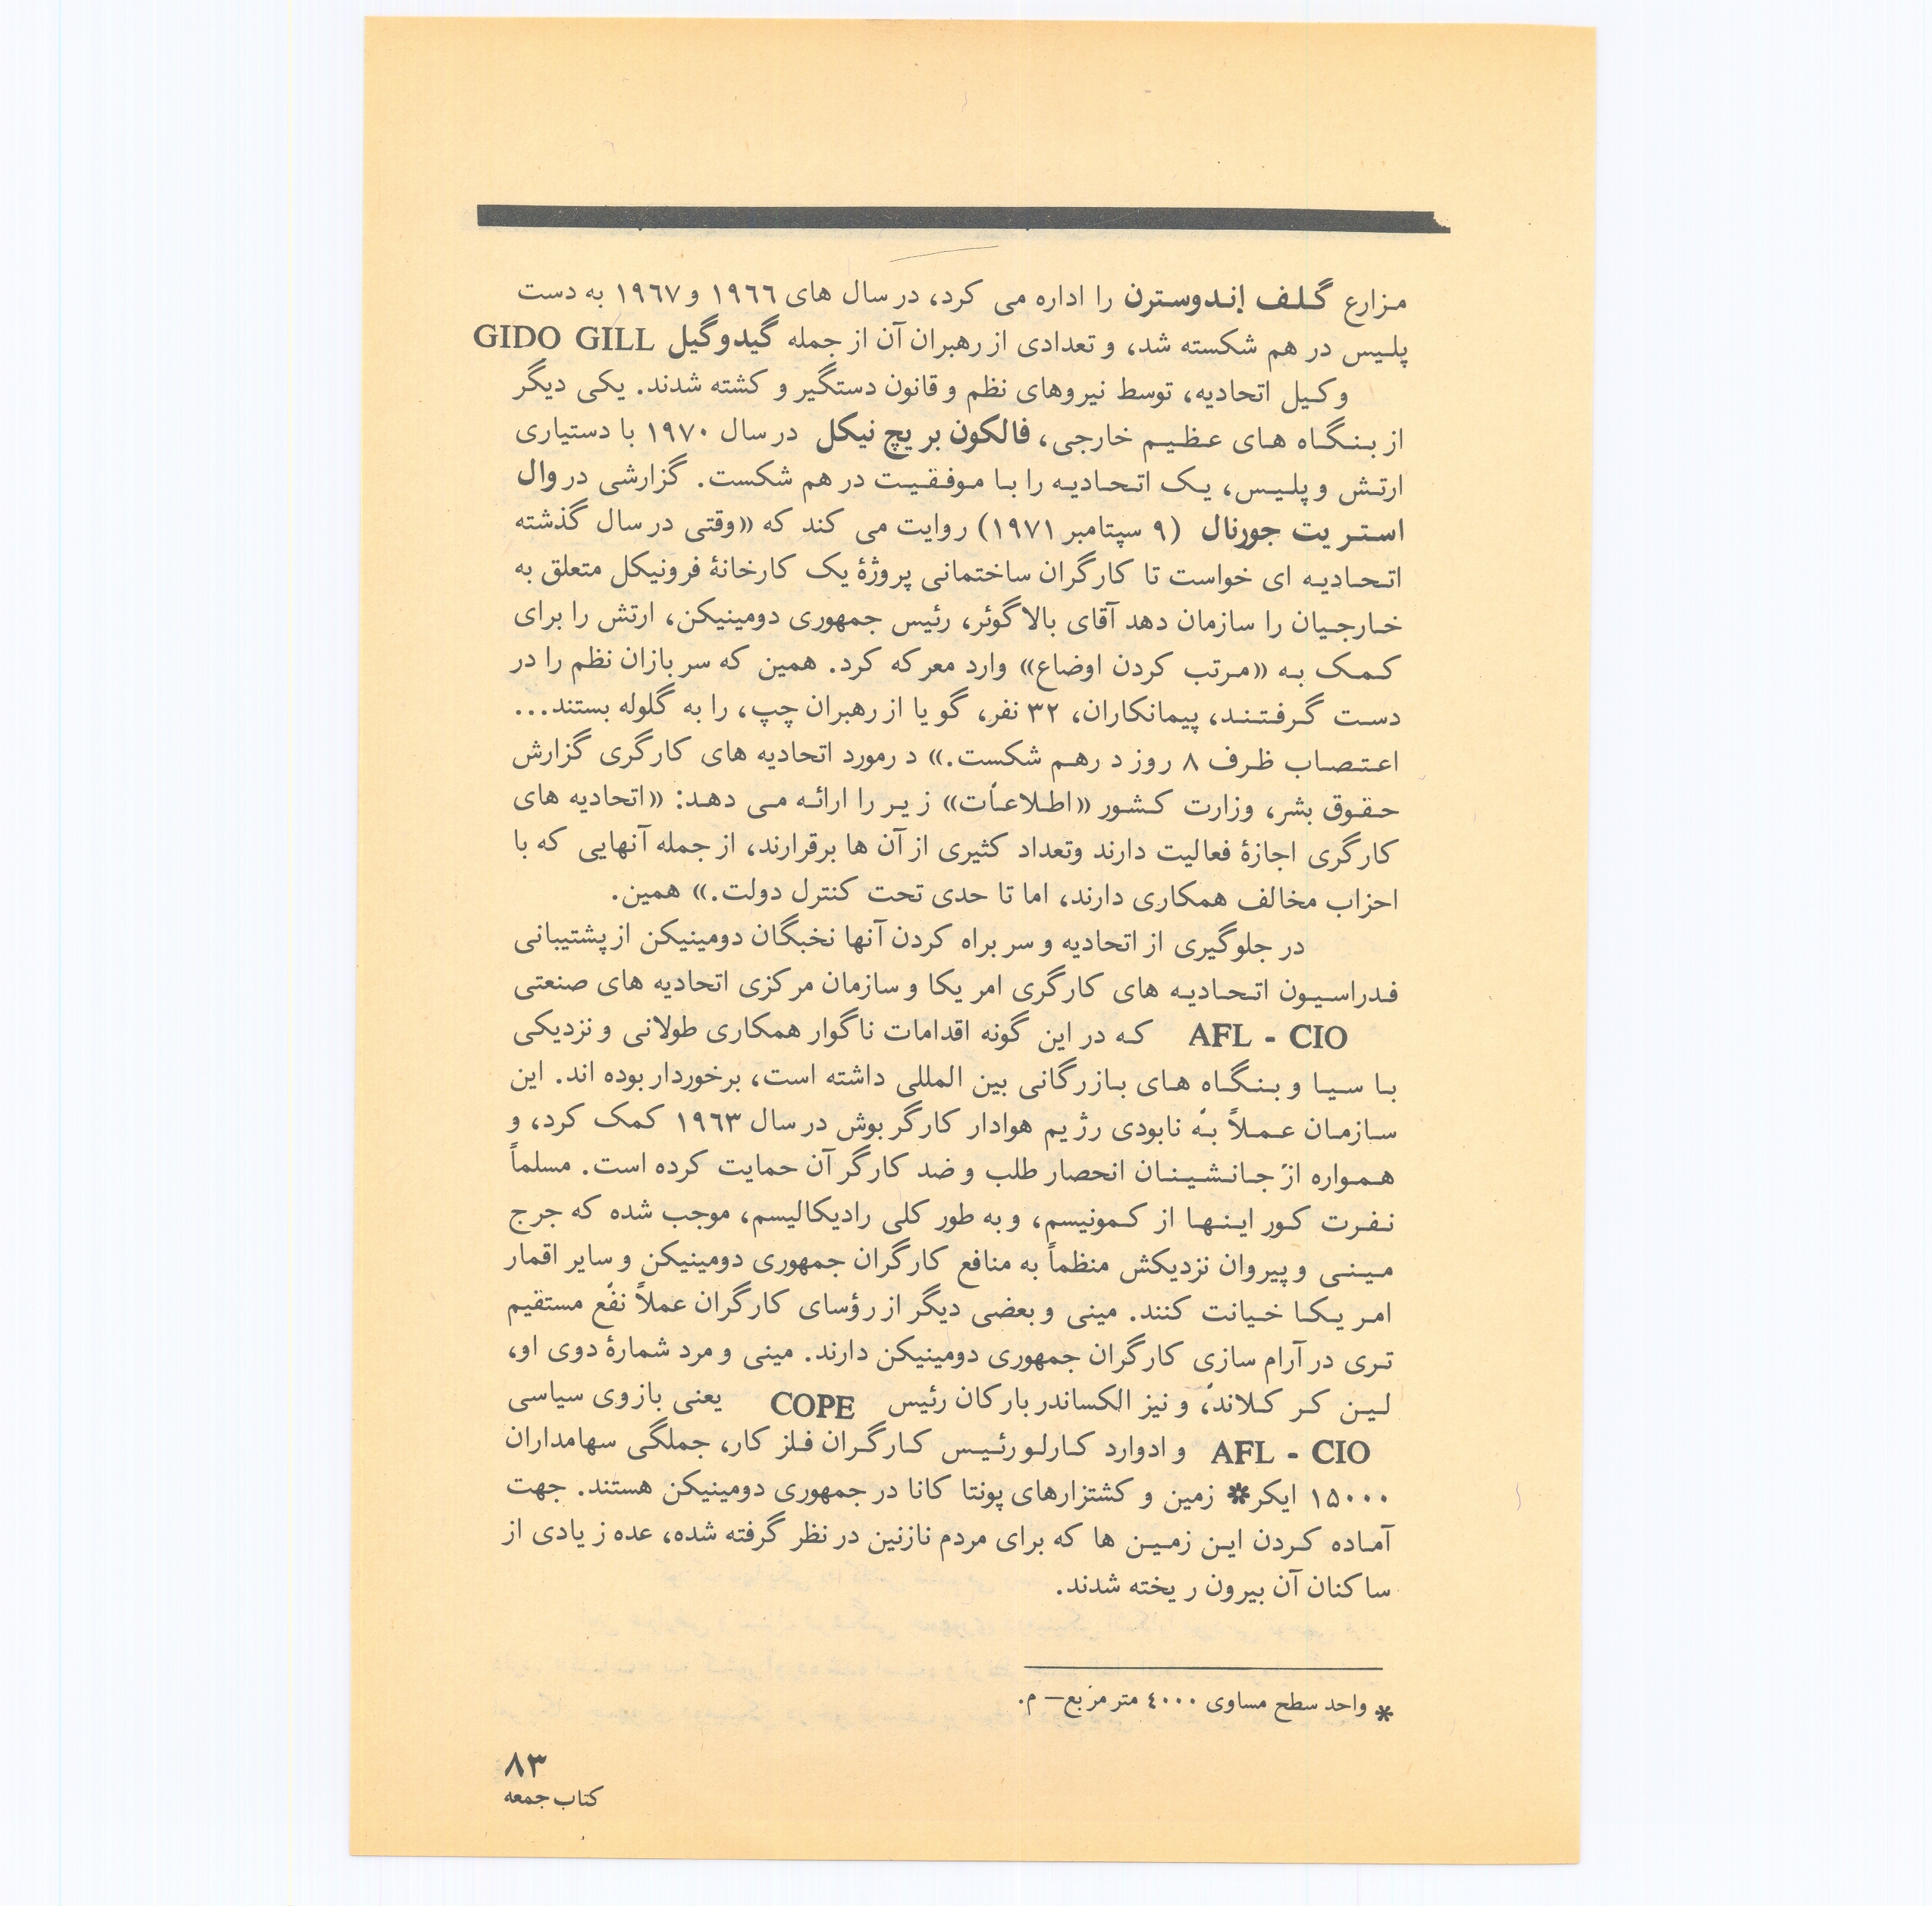 مزارع گلف إندوسترن را اداره می کرد، در سال های ۱۹٦٦ و ۱۹٦۷ به دست
پلیس در هم شکسته شد، و تعدادی از رهبران آن از جمله گیدوگیل GIDO GILL
وکیل اتحادیه، توسط نیروهای نظم و قانون دستگیر و کشته شدند. یکی دیگر
از بنگاه های عظیم خارجی، فالکون بریچ نیکل در سال ۱۹۷۰ با دستیاری
ارتش و پلیس، یک اتحادیه را با موفقیت در هم شکست. گزارشی در وال
استریت جورنال (۹ سپتامبر ۱۹۷۱) روایت می کند که «وقتی در سال گذشته
اتحادیه ای خواست تا کارگران ساختمانی پروژۀ یک کارخانۀ فرونیکل متعلق به
خارجیان را سازمان دهد آقای بالاگوئر، رئیس جمهوری دومینیکن، ارتش را برای
کمک به «مرتب کردن اوضاع» وارد معرکه کرد. همین که سربازان نظم را در
دست گرفتند، پیمانکاران، ۳۲ نفر، گویا از رهبران چپ، را به گلوله بستند...
اعتصاب ظرف ۸ روز درهم شکست.» درمورد اتحادیه های کارگری گزارش
حقوق بشر، وزارت کشور «اطلاعات» زیر را ارائه می دهد: «اتحادیه های
کارگری اجازۀ فعالیت دارند وتعداد کثیری از آن ها برقرارند، از جمله آنهایی که با
احزاب مخالف همکاری دارند، اما تا حدی تحت کنترل دولت.» همین.
در جلوگیری از اتحادیه و سربراه کردن آنها نخبگان دومینیکن از پشتیبانی
فدراسیون اتحادیه های کارگری امریکا و سازمان مرکزی اتحادیه های صنعتی
AFL - CIO که در این گونه اقدامات ناگوار همکاری طولانی و نزدیکی
با سیا و بنگاه های بازرگانی بین المللی داشته است، برخوردار بوده اند. این
سازمان عملاً به نابودی رژیم هوادار کارگر بوش در سال ۱۹٦۳ کمک کرد، و
همواره از جانشینان انحصار طلب و ضد کارگر آن حمایت کرده است. مسلماً
نفرت کور اینها از کمونیسم، و به طور کلی رادیکالیسم، موجب شده که جرج
مینی و پیروان نزدیکش منظماً به منافع کارگران جمهوری دومینیکن و سایر اقمار
امریکا خیانت کنند. مینی و بعضی دیگر از رؤسای کارگران عملاً نفع مستقیم
تری در آرام سازی کارگران جمهوری دومینیکن دارند. مینی و مرد شمارۀ دوی او،
لین کرکلاند، و نیز الکساندر بارکان رئیس COPE یعنی بازوی سیاسی
AFL - CIO و ادوارد کارلو رئیس کارگران فلز کار، جملگی سهامداران
۱۵۰۰۰ ایکر* زمین و کشتزارهای پونتا کانا در جمهوری دومینیکن هستند. جهت
آماده کردن این زمین ها که برای مردم نازنین در نظر گرفته شده، عده زیادی از
ساکنان آن بیرون ریخته شدند.
* واحد سطح مساوی ٤۰۰۰ متر مربع— م.
۸۳
کتاب جمعه